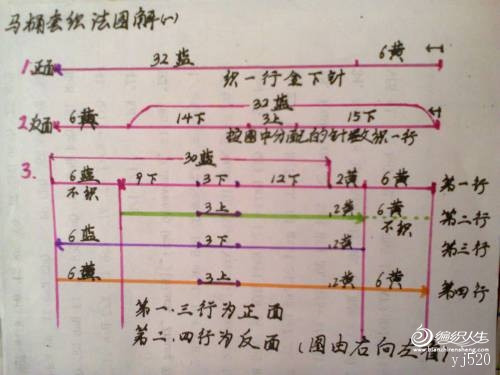 马桶套织法图解(一)
32蓝 6黄
1.正面
织一行全下针
32蓝
6黄 14下 3上 15下
2.反面
按图中分配的针数织一行
30蓝
3.
6蓝 9下 3下 12下 2黄 6黄 第一行
不织
3上 2黄 6黄 第二行
不织
6蓝 3下 2黄 第三行
6蓝 3上 2黄 6黄 第四行
第一.三行为正面
第二.四行为反面 (图由右向左看)
编织人生
www.bianzhirensheng.com
yj520